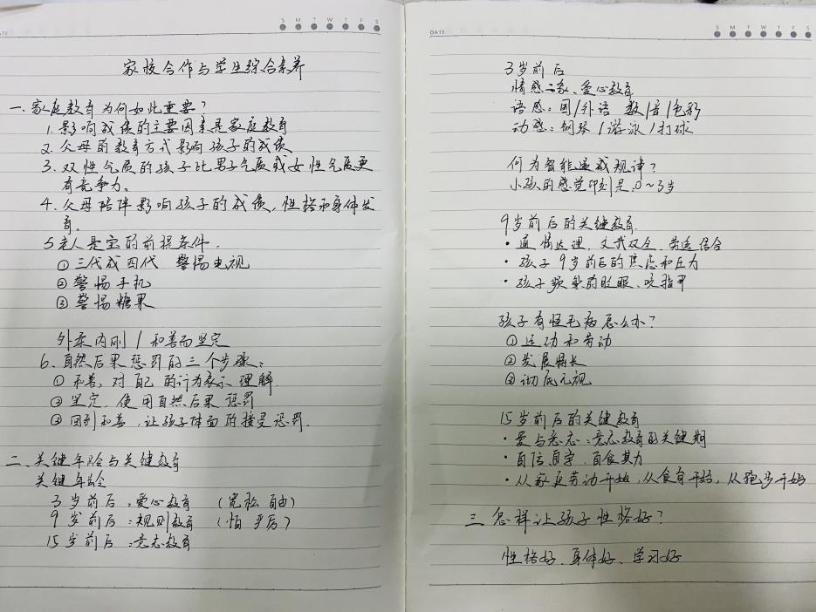 S M T W T F S
家校合作与学生综合素养
一、家庭教育为何如此重要?
1. 影响成绩的主要因素是家庭教育
2. 父母的教育方式影响孩子的成绩
3. 双性气质的孩子比男子气质或女性气质更
有竞争力。
4. 父母陪伴影响孩子的成绩,性格和身体发
育。
5 老人是宝的前提条件.
① 三代或四代 警惕电视
② 警惕手机
③ 警惕糖果
外柔内刚 / 和善而坚定
6. 自然后果惩罚的三个步骤:
① 和善,对自己的行为表示理解
② 坚定,使用自然后果惩罚
③ 回到和善,让孩子体面的接受惩罚.
二、关键年龄与关键教育
关键年龄
3岁前后:爱心教育 (宽松 自由)
9岁前后:规则教育 (怕 严厉)
15岁前后:意志教育
DATE S M T W T F S
3岁前后
情感:家、爱心教育
语感:国/外语 数/音/色彩
动感:钢琴/游泳/打球
何为智能递减规律?
小孩的感觉印刻是:0~3岁
9岁前后的关键教育
• 通情达理,文武双全,劳逸结合
• 孩子9岁前后的焦虑和压力
• 孩子频繁的眨眼、咬指甲
孩子有怪毛病怎么办?
① 运动和劳动
② 发展特长
③ 彻底无视
15岁前后的关键教育
• 爱与意志:意志教育的关键期
• 自信自字,自食其力
• 从家庭劳动开始,从食育开始,从跑步开始
三 怎样让孩子性格好?
性格好、身体好、学习好